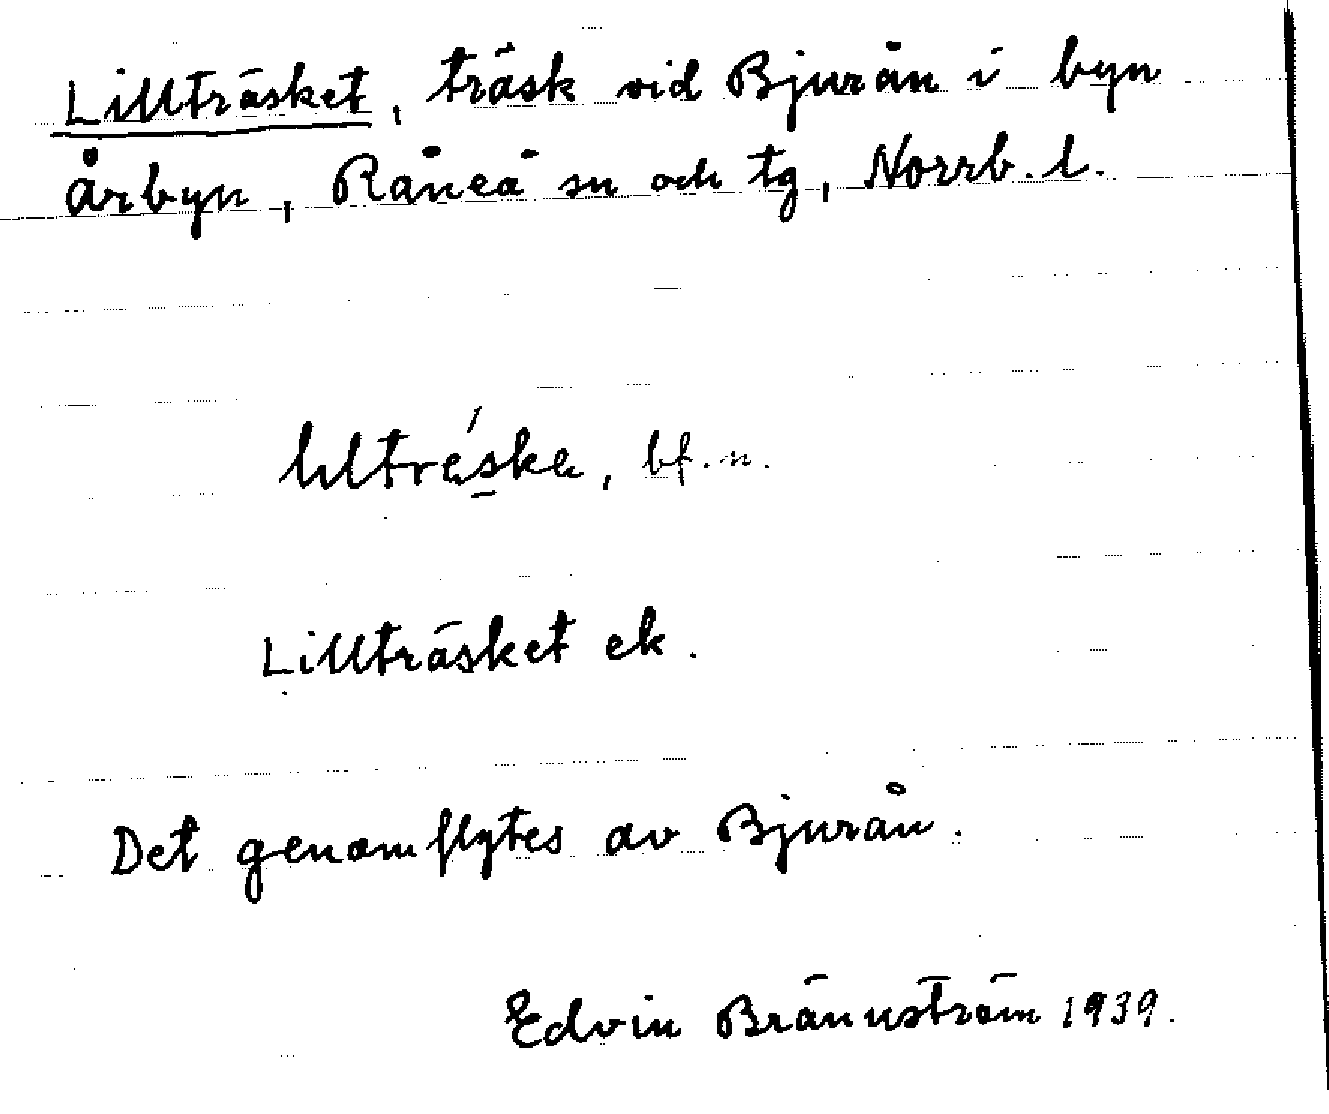 Lillträsket, träsk vid Bjurån i byn
Årbyn, Råneå sn och tg, Norrb. l.
bf. n.
Lillträsket ek.
Det genomflytes av Bjurån.
Edvin Brännström 1939.